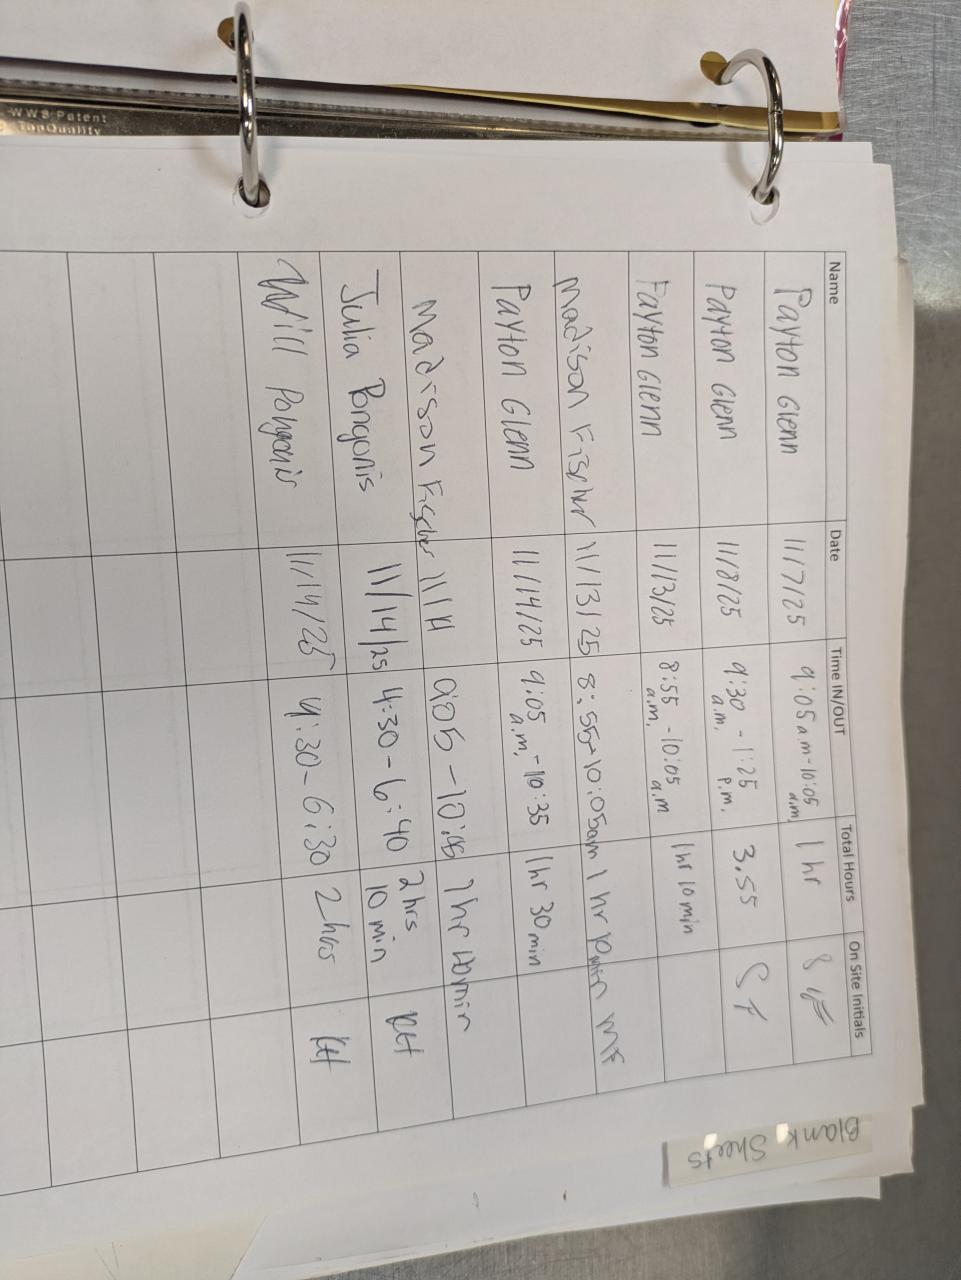 WWS Patent
TopQuality
Name Date Time IN/OUT Total Hours On Site Initials
Payton Glenn 11/7/25 9:05 a.m - 10:05 a.m, 1 hr
Payton Glenn 11/8/25 9:30 a.m. - 1:25 P.m. 3.55
Payton Glenn 11/13/25 8:55 a.m. - 10:05 a.m 1hr 10 min
Madison Fischer 11/13/25 8:55-10:05am 1 hr 10min MF
Payton Glenn 11/14/25 9:05 a.m. - 10:35 1hr 30 min
Madison Fischer 11/14 9:05 - 1 hr
Julia Pongonis 11/14/25 4:30 - 6:40 2 hrs 10 min
Will Pongonis 11/14/25 4:30 - 6:30 2 hrs
Blank Sheets